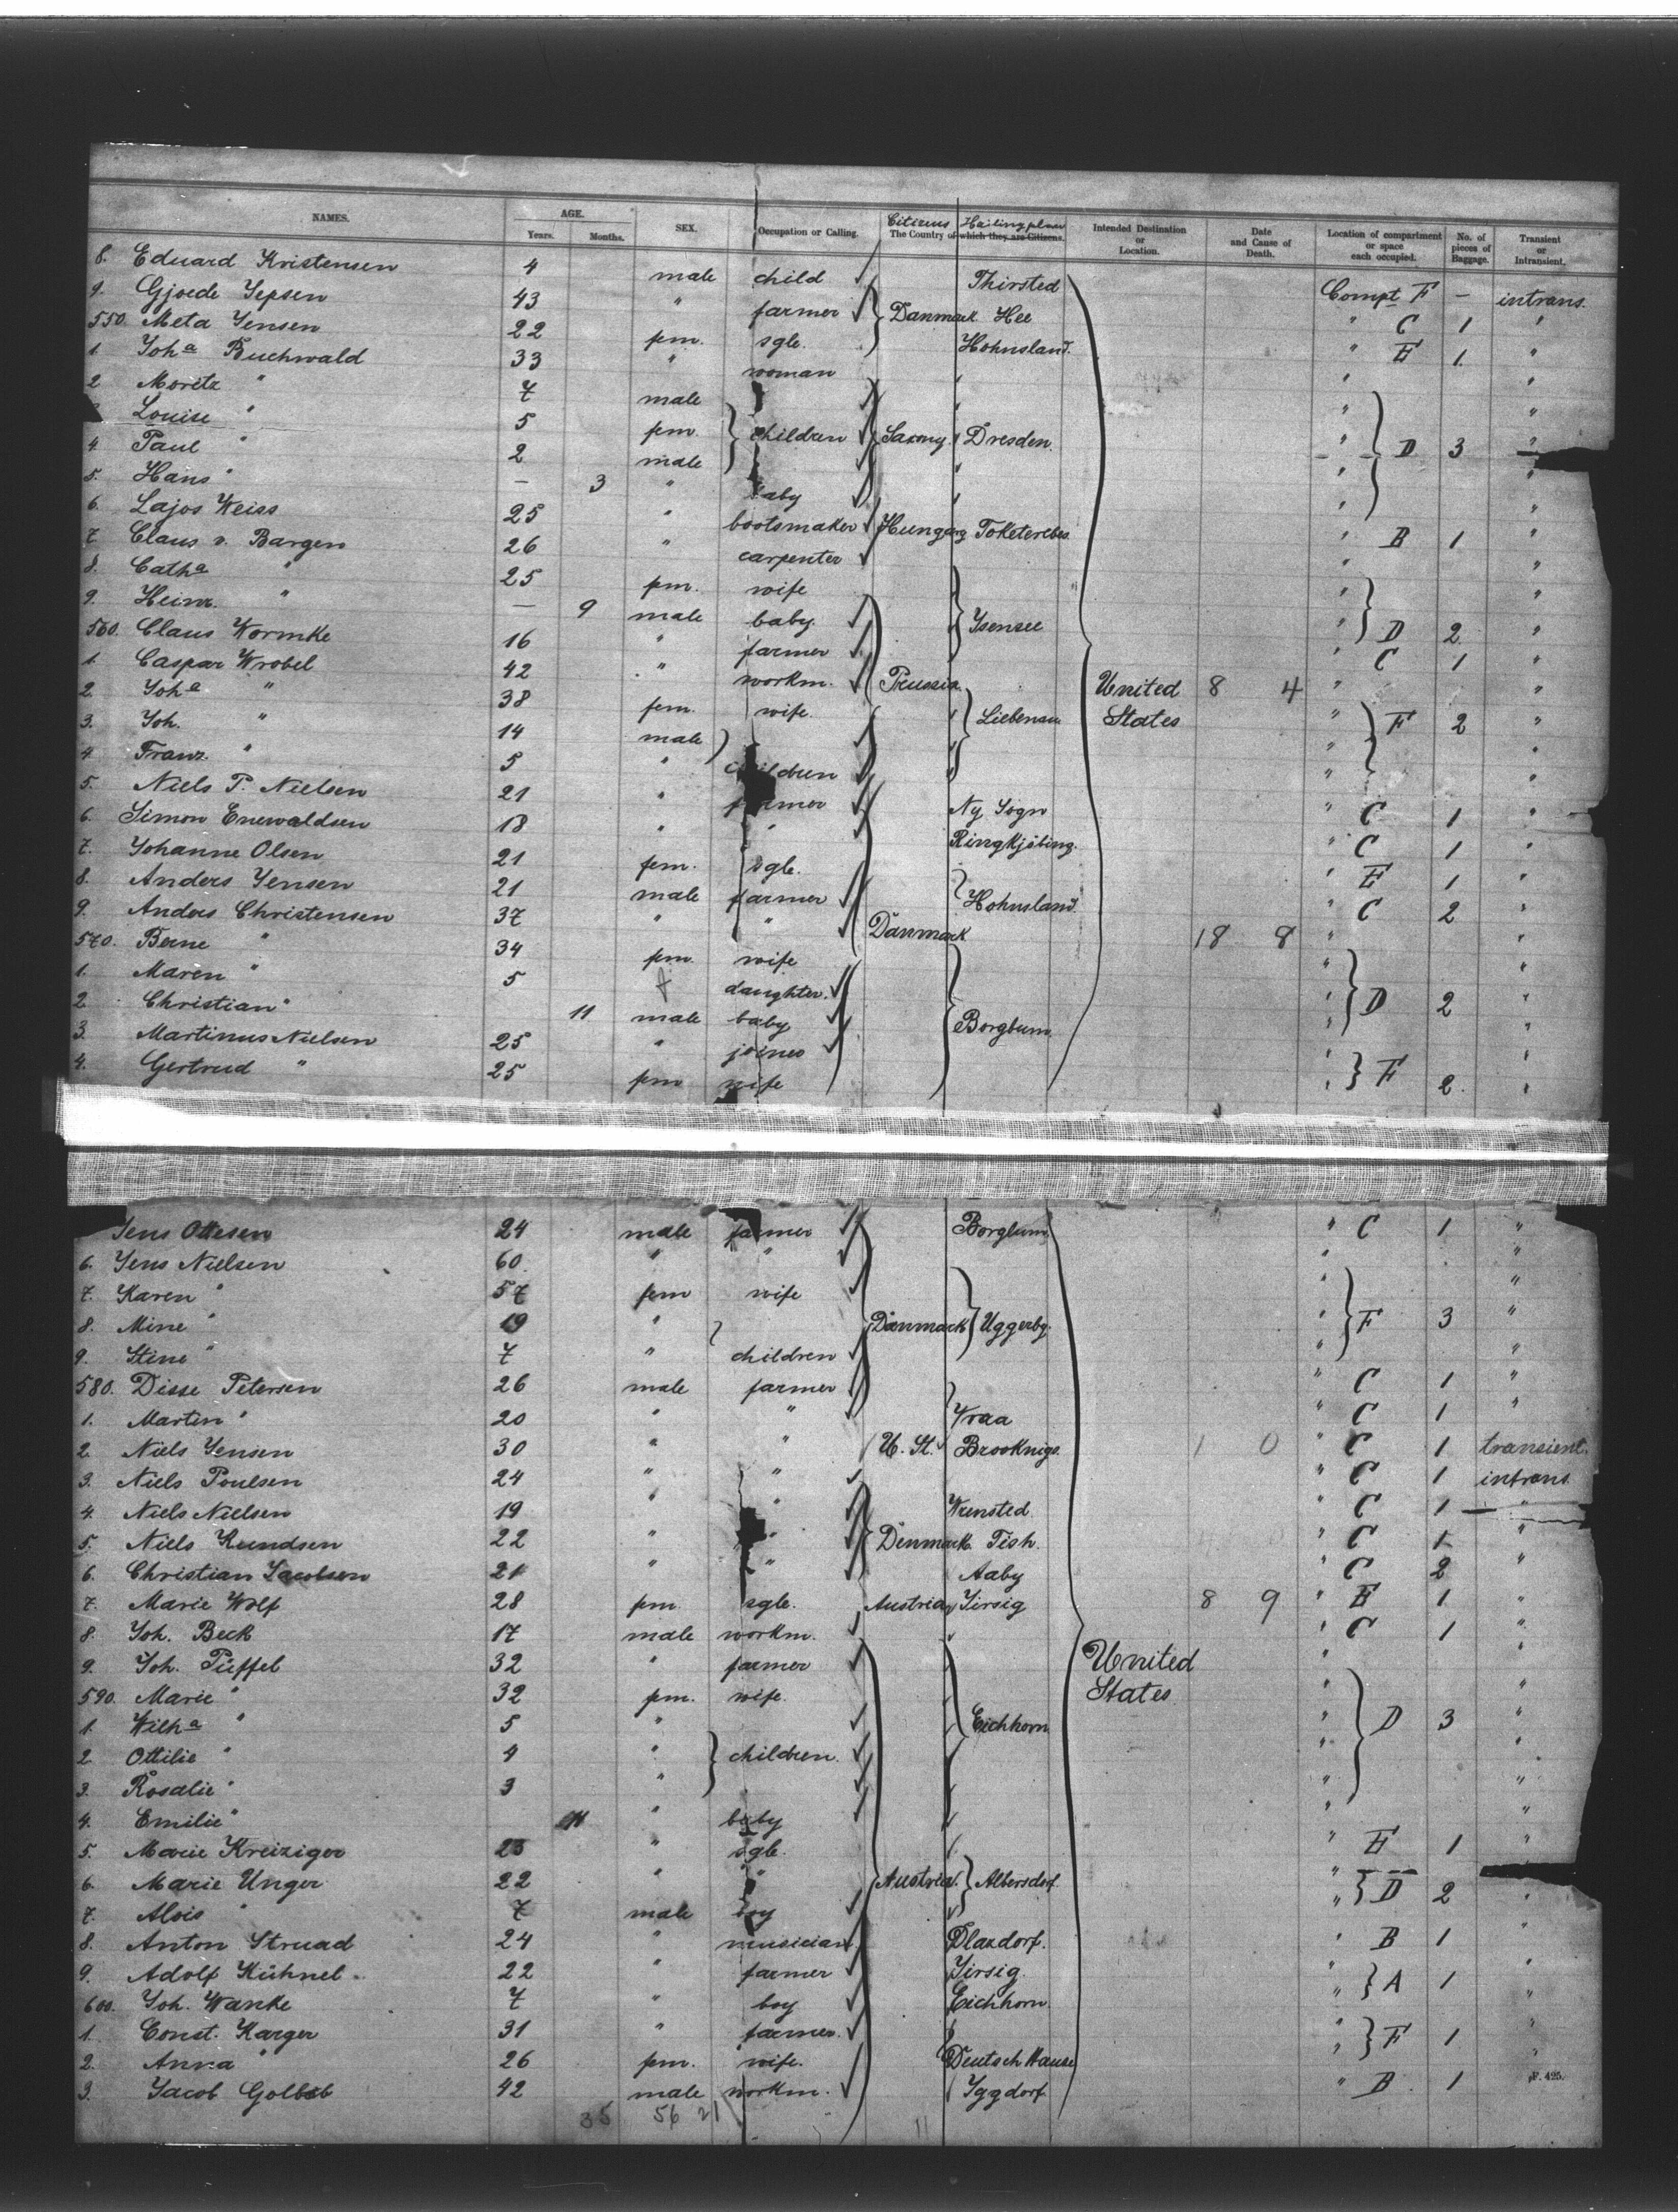 NAMES. AGE. Years. Months. SEX. Occupation or Calling. Citizens The Country of which they are Citizens. Hailingplace Intended Destination or Location. Date and Cause of Death. Location of compartment or space each occupied. No. of pieces of Baggage. Transient or Intransient.
8. Eduard Kristensen 4 male child Thirsted Compt F – intrans.
9. Gjoede Jepsen 43 " farmer Danmark Hee " C 1 "
550. Meta Jensen 22 fem. sgle. Hohnsland. " E 1. "
1. Joha Buchwald 33 " woman " "
2 Moritz " 7 male " "
Louise " 5 fem. children Saxony Dresden. " D 3 "
4. Paul " 2 male " "
5. Hans " – 3 " baby " "
6. Lajos Weiss 25 " bootsmaker Hungary Toketerebes " B 1 "
7. Claus v. Bargen 26 " carpenter " "
8. Catha " 25 fem. wife " "
9. Heinr. " – 9 male baby. Ysensee " D 2 "
560. Claus Wormke 16 " farmer " C 1 "
1. Caspar Wrobel 42 " workm. Prussia. United 8 4 " "
2. Joha " 38 fem. wife. Liebenau States " F 2 "
3. Joh. " 14 male " "
4. Franz. " 5 " children " "
5. Niels P. Nielsen 21 " farmer Ny Sogn " C 1 "
6. Simon Enewaldsen 18 " " Ringkjöbing. " C 1 "
7. Johanne Olsen 21 fem. sgle. " E 1 "
8. Anders Jensen 21 male farmer Hohnsland. " C 2 "
9. Anders Christensen 37 " " Danmark 18 8 " "
570. Berne " 34 fem. wife " "
1. Maren " 5 f daughter. " D 2 "
2. Christian " 11 male baby Borgbum. " "
3. Martinus Nielsen 25 " joines " "
4. Gertrud " 25 fem wife " F 2. "
Jens Ottesen 24 male farmer Borglum. " C 1 "
6. Jens Nielsen 60. " " " "
7. Karen " 57 fem wife " "
8. Mine " 19 " Danmark Uggerby. " F 3 "
9. Stine " 7 " children " "
580. Disse Petersen 26 male farmer " C 1 "
1. Martin " 20 " " Vraa " C 1 "
2. Niels Jensen 30 " " U. St. Brooknigs. 1 0 " C 1 transient.
3. Niels Poulsen 24 " " " C 1 intrans.
4. Niels Nielsen 19 " Wensted. " C 1 "
5. Niels Kundsen 22 " " Denmark Tish. " C 1 "
6. Christian Jacobsen 21 " " Aaby " C 2 "
7. Marie Wolf 28 fem. sgle. Austria Jirsig 8 9 " E 1 "
8. Joh. Beck 17 male workm. " C 1 "
9. Joh. Püffel 32 " farmer United " "
590. Marie " 32 fem. wife. States " "
1. Wilha " 5 " Eichhorn " D 3 "
2. Ottilie " 4 " children. " "
3. Rosalie " 3 " " "
4. Emilie " 11 " baby " "
5. Marie Kreiziger 23 " sgle. " E 1 "
6. Marie Unger 22 " " Austria. Albersdorf. " D 2
7. Alois " 7 male boy " "
8. Anton Struad 24 " musician. Dlaxdorf. " B 1 "
9. Adolf Kühnel. 22 " farmer Jirsig. " A 1 "
600. Joh. Wanke 7 " boy Eichhorn. " "
1. Const. Karger 31 " farmer. " F 1 "
2. Anna " 26 fem. wife. Deutsch Hause " "
3. Jacob Golbob 42 male workm. Iggdorf. " B. 1 F. 495.
35 56 21 11